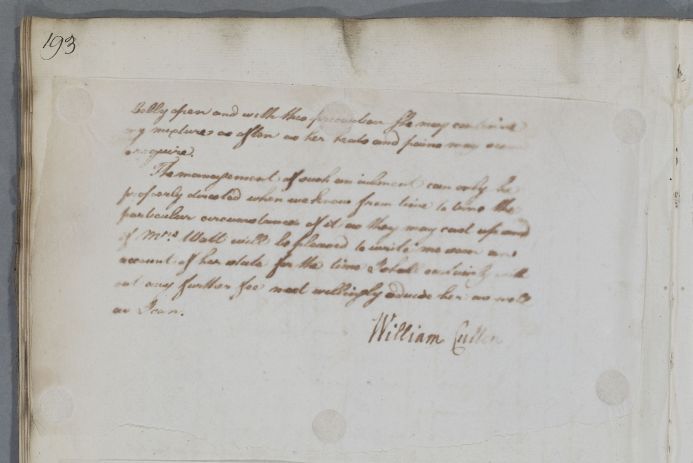 193
Belly open and with this precaution She may continue
my mixture as often as her heats and pains may seem
require.
The management of such an ailment can only be
properly directed when we know from time to time the
particular circumstances of it as they may cast up and
if Mrs Watt will be pleased to write me soon an
account of her state for the time I shall certainly with
out any further fee most willingly advise her as well
as I can.
William Cullen